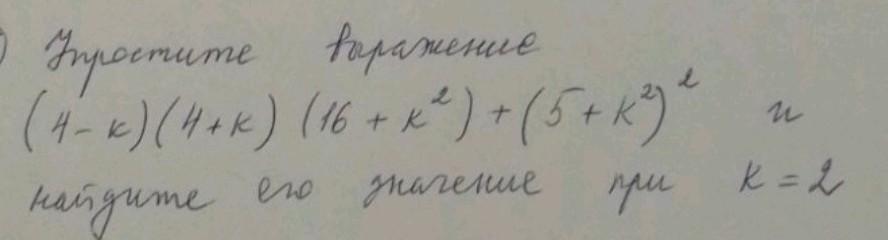 ) Упростите выражение
(4-к)(4+к)(16+к²)+(5+к²)² и
найдите его значение при к=2